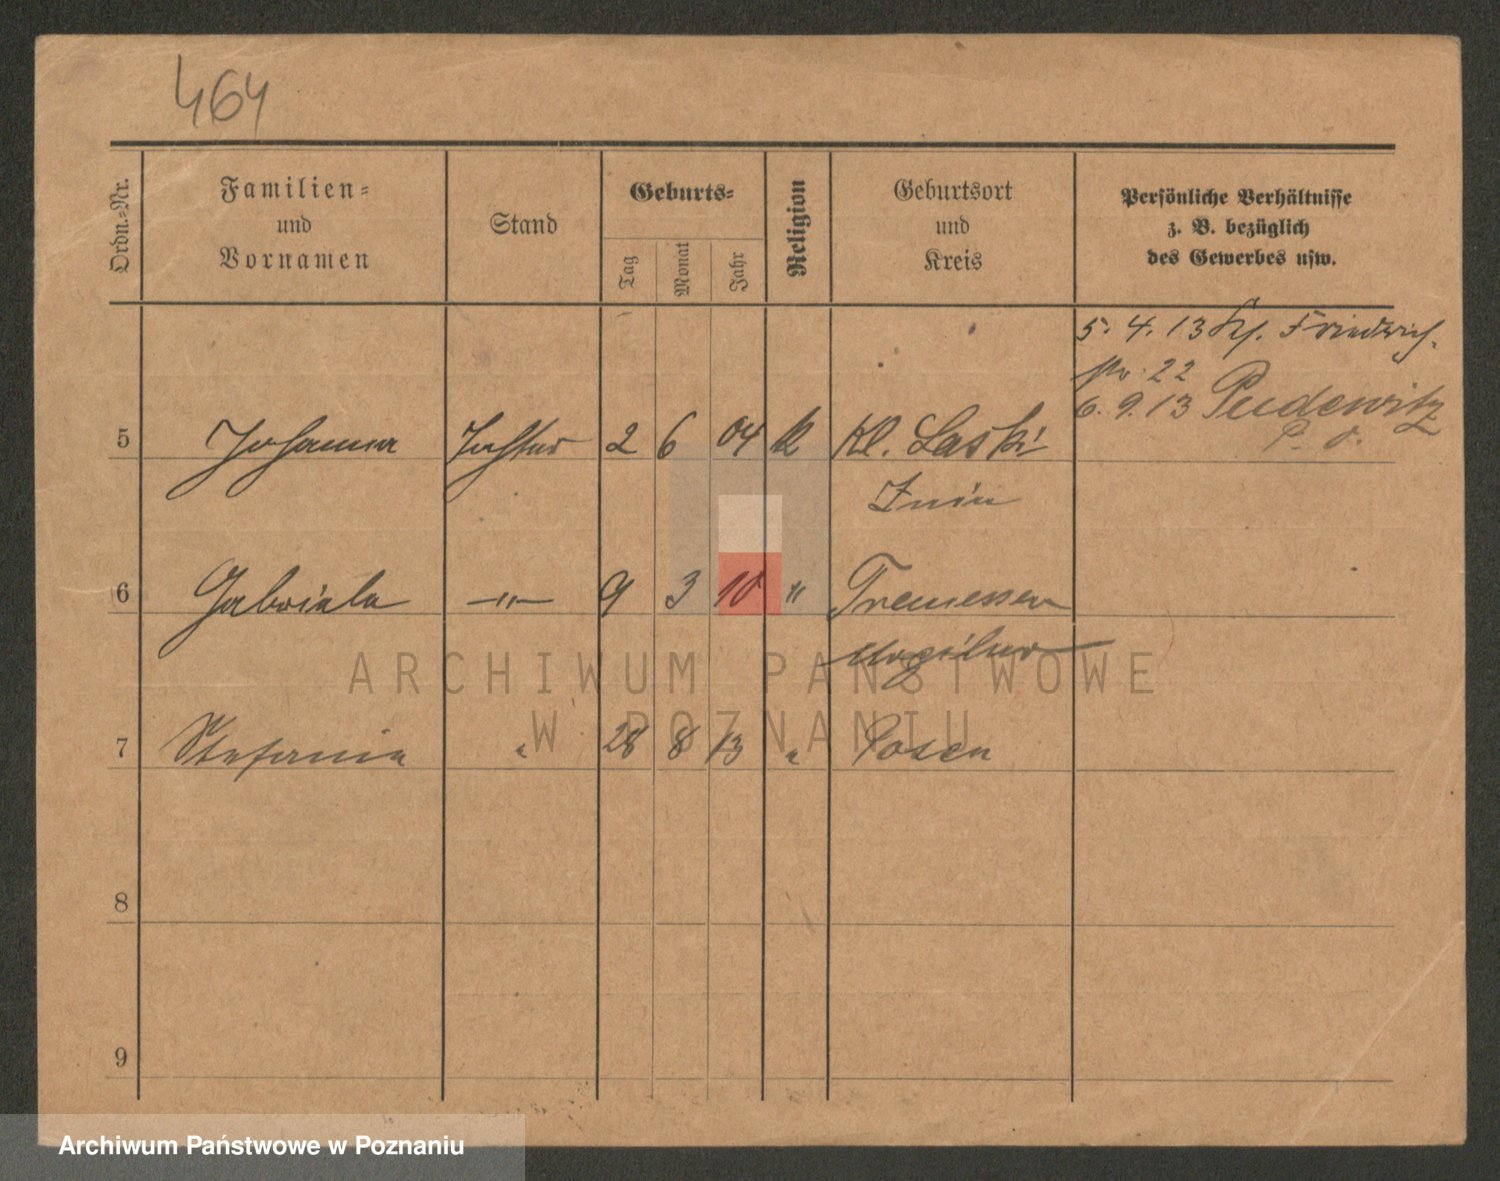 464
Ordn.-Nr.
Familien-
und
Vornamen
Stand
Geburts-
Tag
Monat
Jahr
Religion
Geburtsort
und
Kreis
Persönliche Verhältnisse
z. B. bezüglich
des Gewerbes usw.
5. 4. 13 Friedrich-
str. 22
6. 9. 13 Pudewitz
5 Johanna Tochter 2 6 04 k Kl. Laski
Znin
6 Gabriela —"— 9 3 10 " Tremessen
Mogilno
7 Stefania " 28 8 13 " Posen
8
9
ARCHIWUM PAŃSTWOWE
W POZNANIU
Archiwum Państwowe w Poznaniu